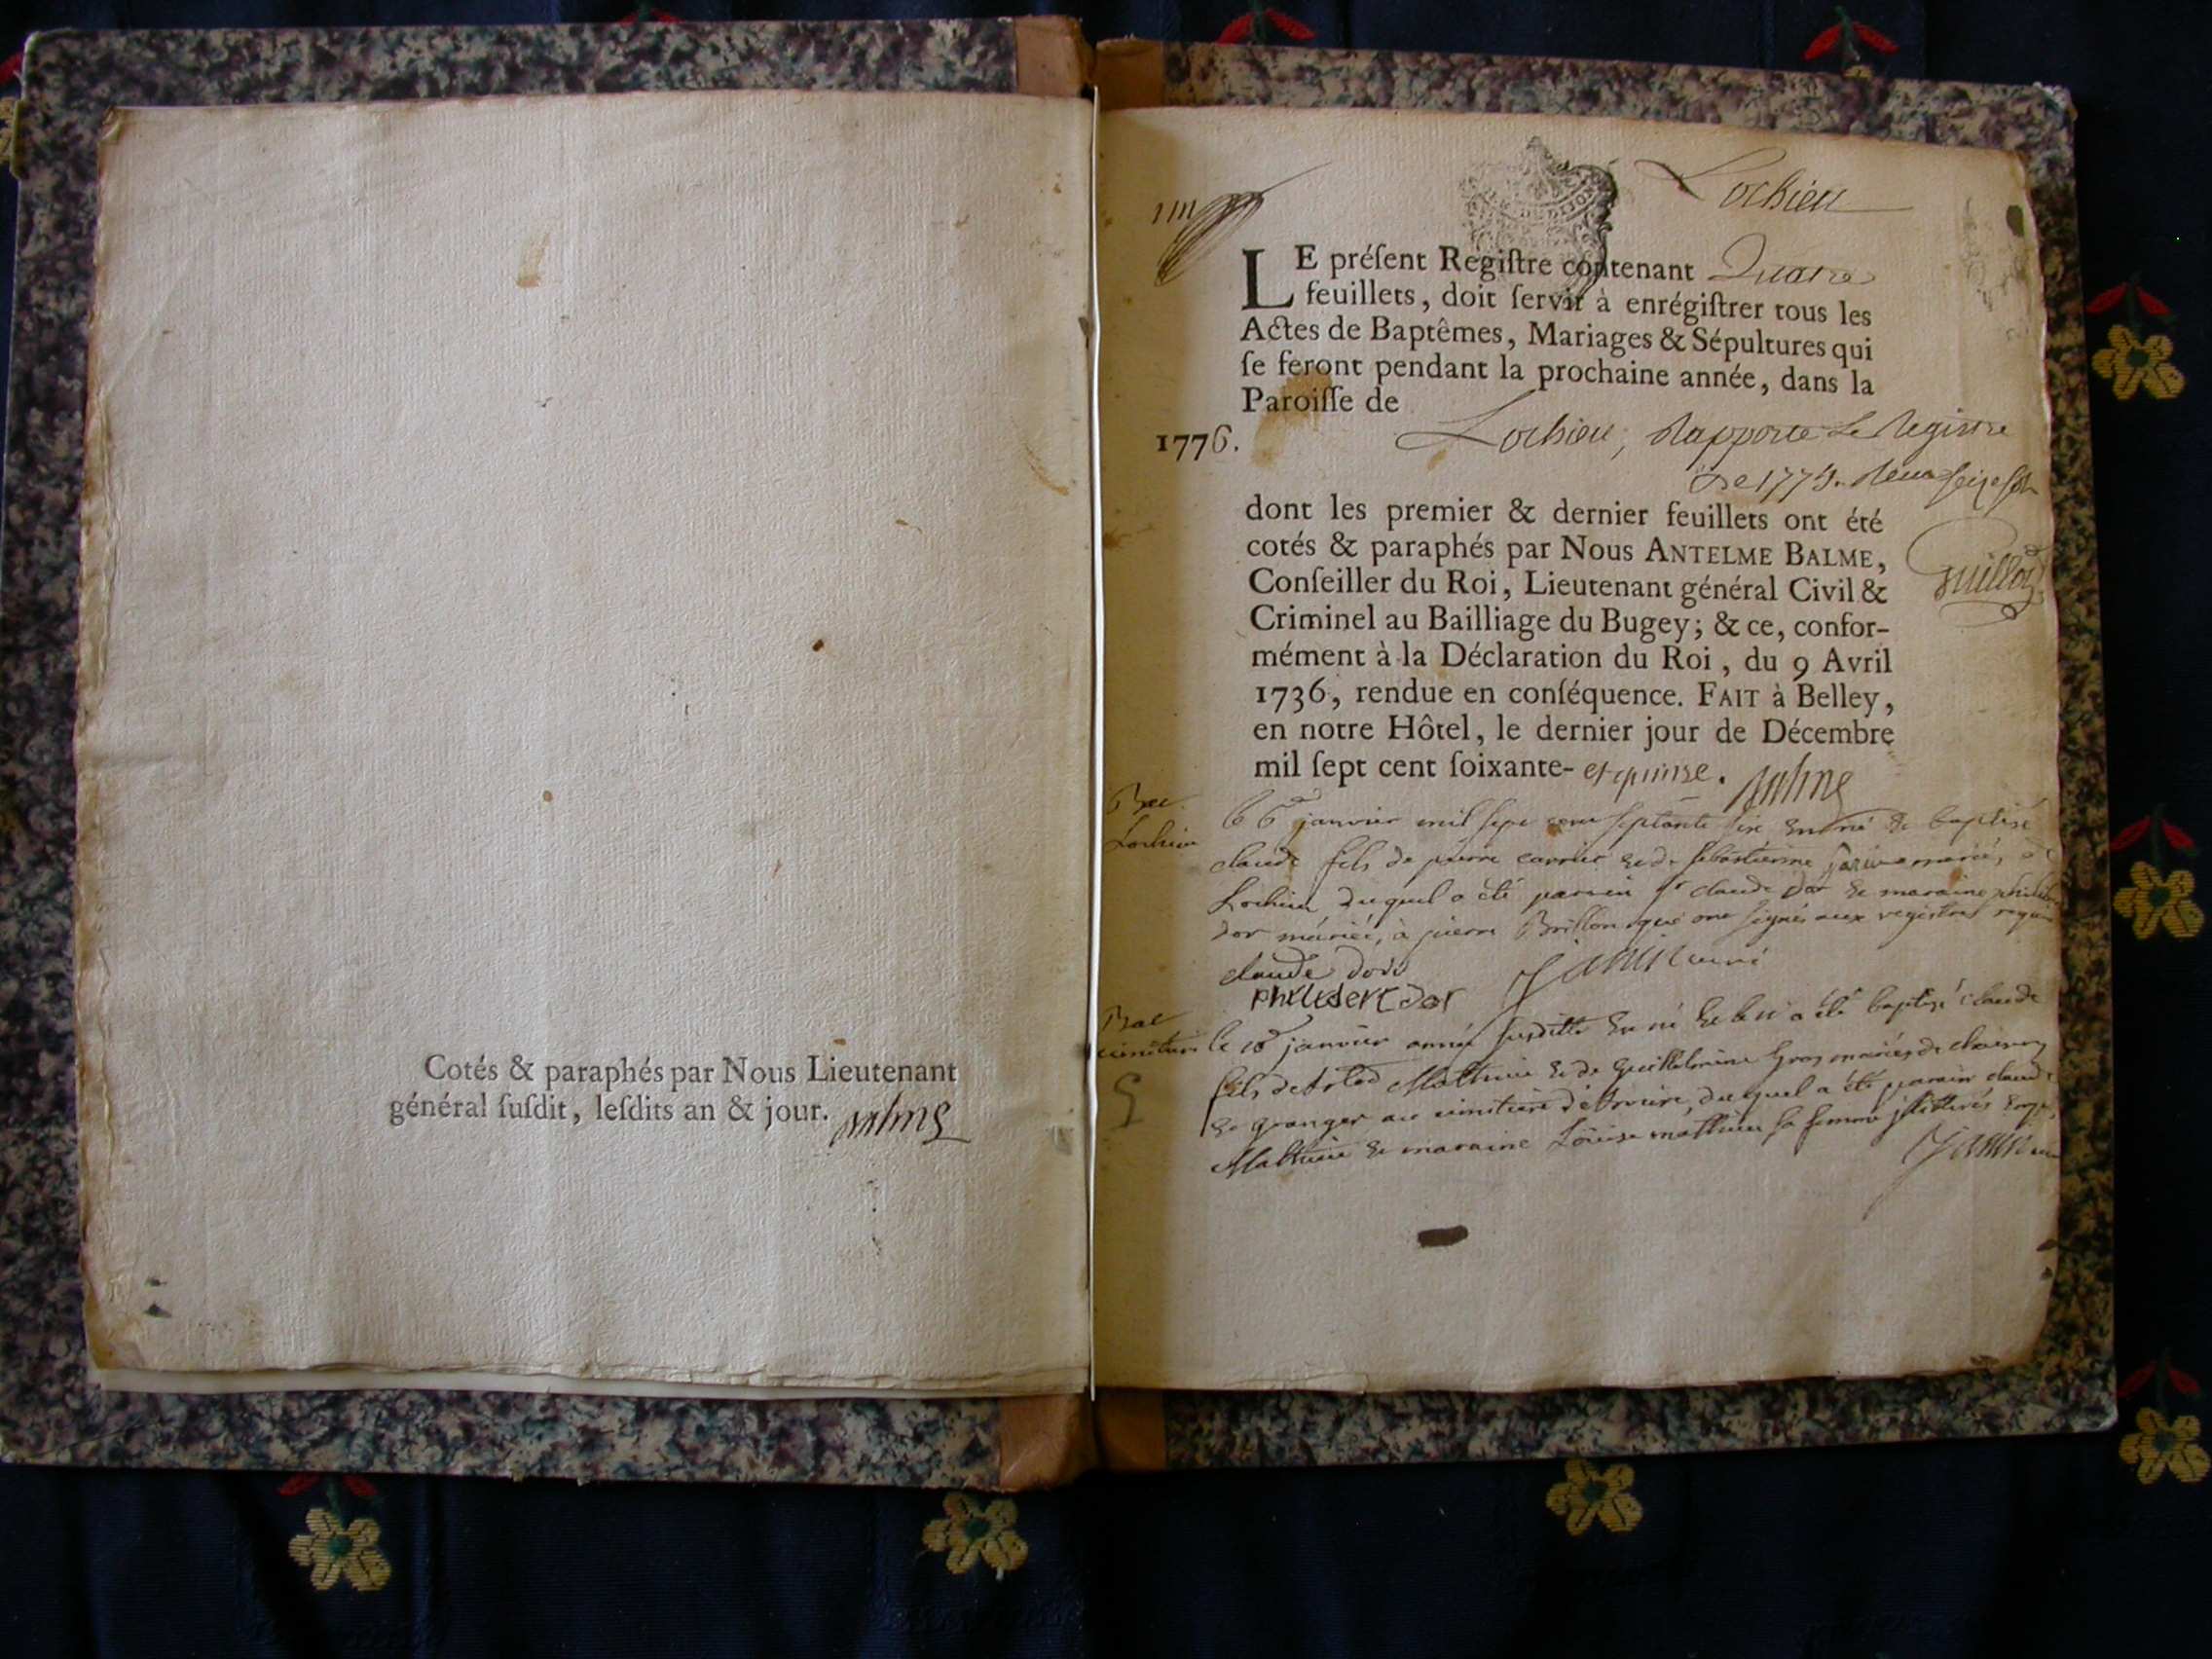 Cotés & paraphés par Nous Lieutenant
général ſuſdit, leſdits an & jour. Balme
Lochieu
LE préſent Regiſtre contenant Quatre
feuillets, doit ſervir à enrégiſtrer tous les
Actes de Baptêmes, Mariages & Sépultures qui
ſe feront pendant la prochaine année, dans la
Paroiſſe de
1776. Lochieu, Rapporté Le Registre
De 1775. Reçu seize sols
dont les premier & dernier feuillets ont été
cotés & paraphés par Nous ANTELME BALME,
Conſeiller du Roi, Lieutenant général Civil &
Criminel au Bailliage du Bugey; & ce, confor-
mément à la Déclaration du Roi, du 9 Avril
1736, rendue en conſéquence. FAIT à Belley,
en notre Hôtel, le dernier jour de Décembre
mil ſept cent ſoixante- et quinse. Balme
Lochieu
le 6e janvier mil sept cent septante six est né & baptisé
claude fils de pierre carrier et de sebastienne mariés, à
Lochieu duquel a été parrain sr claude dor & maraine
dor mariée, à pierre Brillon qui ont signés aux registres
claude dor
Janin curé
philibert dor
le 18e janvier année susditte est né et a été baptisé claude
fils de Mathieu & de Guillelmine Gros mariés de
& granger au cimetiere duquel a été parain claude
Mathieu & maraine Loüise mathieu sa femme illitterés
Janin